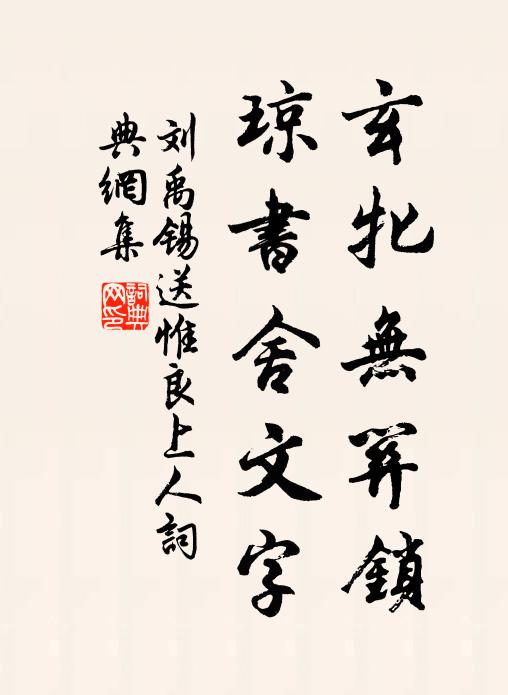 玄牝無關鎖
琼書舍文字
刘禹錫送惟良上人詞
典網集
詞典网印